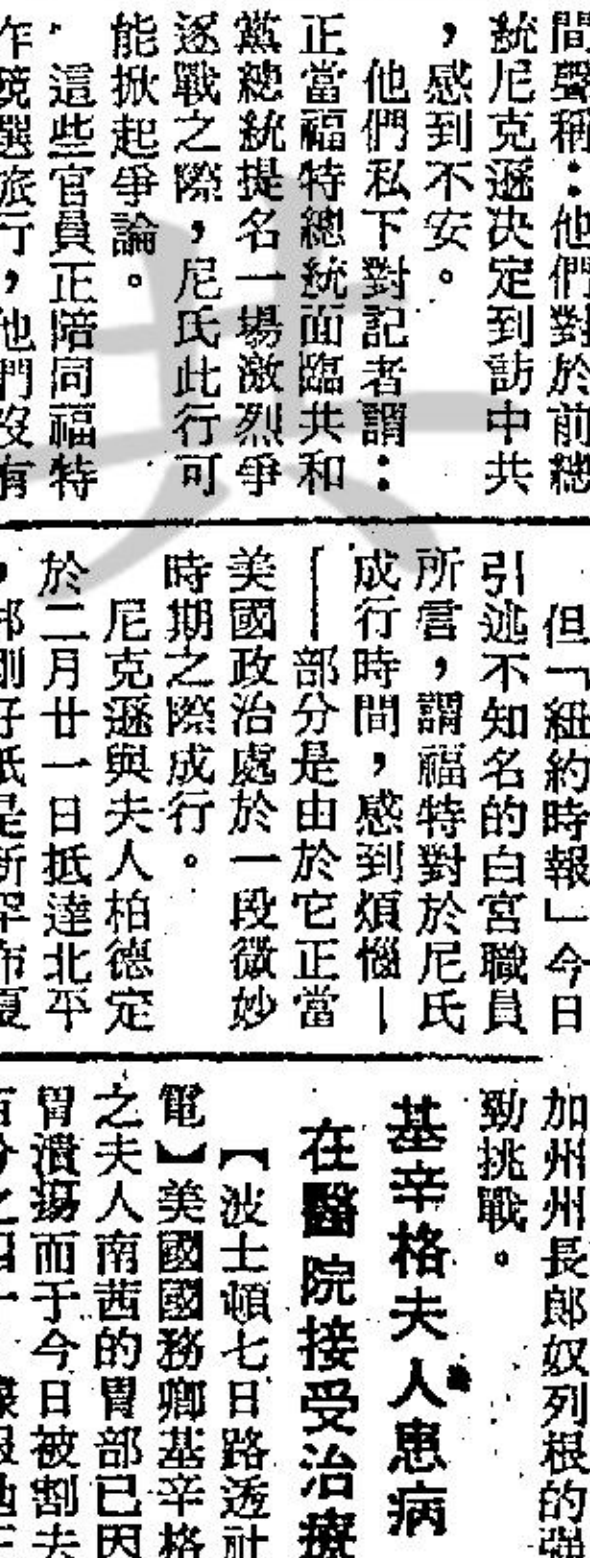 間聲稱：他們對於前總
統尼克遜决定到訪中共
，感到不安。
他們私下對記者謂：
正當福特總統面臨共和
黨總統提名一場激烈爭
逐戰之際，尼氏此行可
能掀起爭論。
這些官員正陪同福特
作競選旅行，他們沒有
但「紐約時報」今日
引述不知名的白宮職員
所言，謂福特對於尼氏
成行時間，感到煩惱—
—部分是由於它正當
美國政治處於一段微妙
時期之際成行。
尼克遜與夫人柏德定
於二月廿一日抵達北平
，那剛好祇是新罕布夏
加州州長郞奴列根的强
勁挑戰。
基辛格夫人患病
在醫院接受治療
【波士頓七日路透社
電】美國國務卿基辛格
之夫人南茜的胃部已因
胃潰瘍而于今日被割去
百分之四十